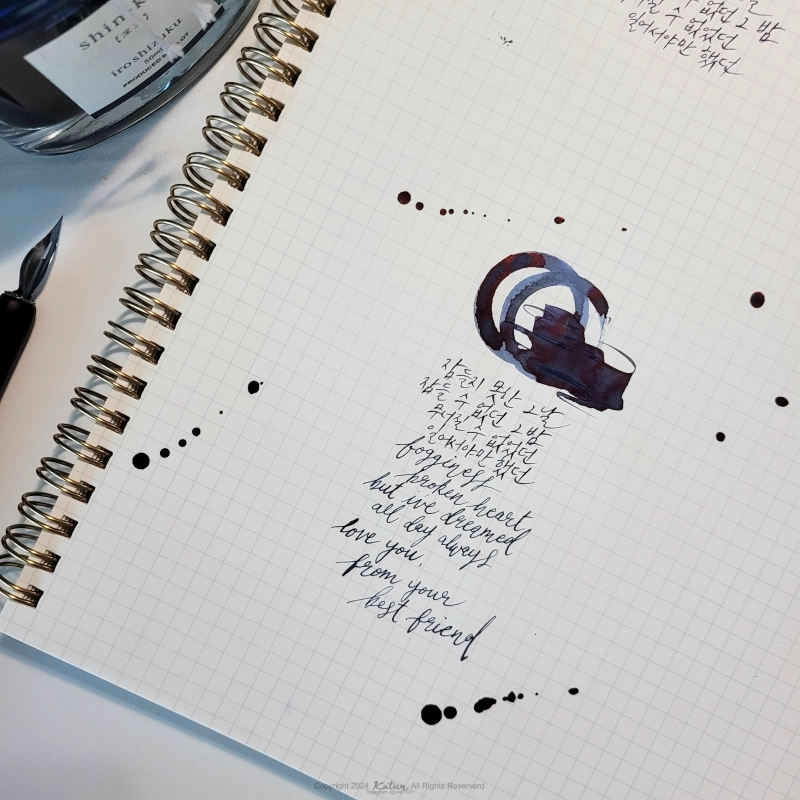 shin-k
iroshizuku
50ml
PRODUCED B
수 없던 그 밤
일어서야만 했던
잠들지 못한 그날
잠들 수 없던
무너질 수 없던 그 밤
일어서야만 했던
fogginess
broken heart
but we dreamed
all day always
love you.
from your
best friend
Copyright 2024. Katur. All Rights Reserverd.